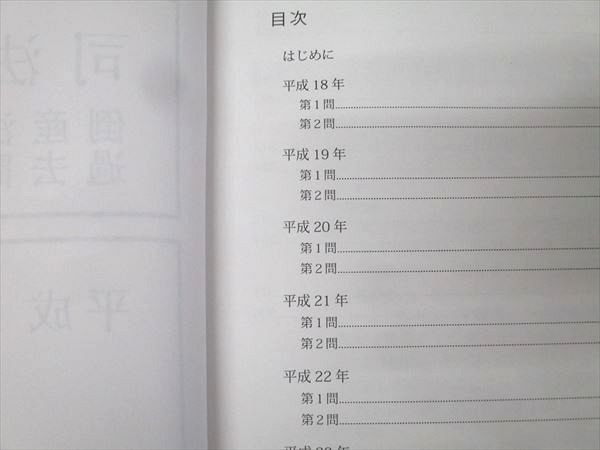 目次
はじめに
平成 18 年
第1問
第2問
平成 19 年
第1問
第2問
平成 20 年
第1問
第2問
平成 21 年
第1問
第2問
平成 22 年
第1問
第2問
司法
倒産法
過去
平成